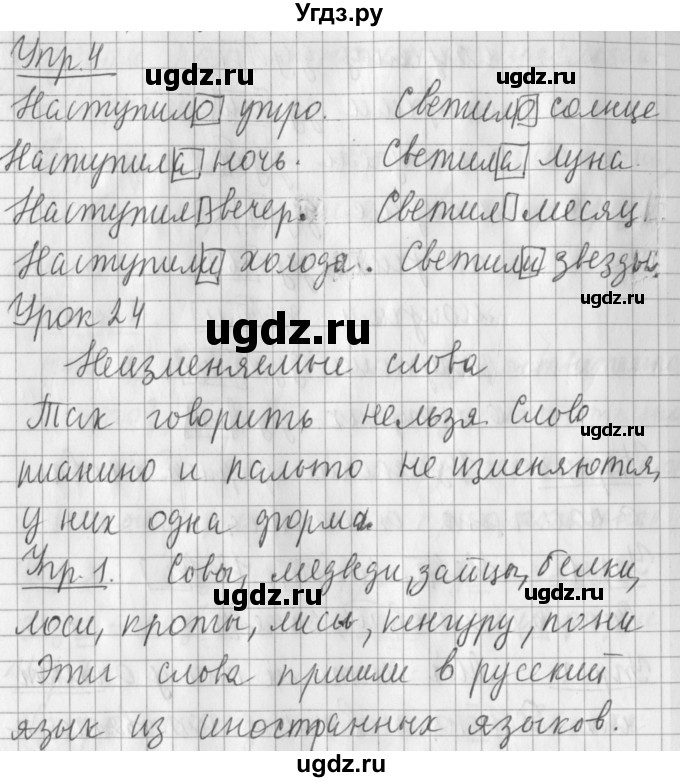 Угдз.ру
Упр. 4
ugdz.ru ugdz.ru
Наступило утро. Светило солнце
Наступила ночь. Светила луна.
ugdz.ru ugdz.ru
Наступил вечер. Светил месяц.
Наступили холода. Светили звезды.
ugdz.ru
Урок 24
ugdz.ru
Неизменяемые слова
Так говорить нельзя. Слово
ugdz.ru ugdz.ru
пианино и пальто не изменяются,
у них одна форма.
Упр. 1. Совы, медведи, зайцы, белки,
ugdz.ru ugdz.ru
лоси, кроты, лисы, кенгуру, пони
Эти слова пришли в русский
язык из иностранных языков.
ugdz.ru